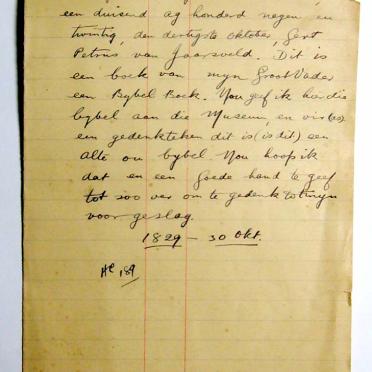 een duisend ag honderd negen en
twintig, den dertigste oktober, Gert
Petrus van Jaarsveld. Dit is
een boek van myn Groot Vader
een Bybel Boek. Nou gef ik hierdie
bybel aan die Museum en vir (as)
een gedenkteken dit is (is dit) een
alte ou bybel. Nou hoop ik
dat en een goede hand te geef
tot soo ver om te gedenk tot myn
voor geslag.
1829 – 30 Okt.
189